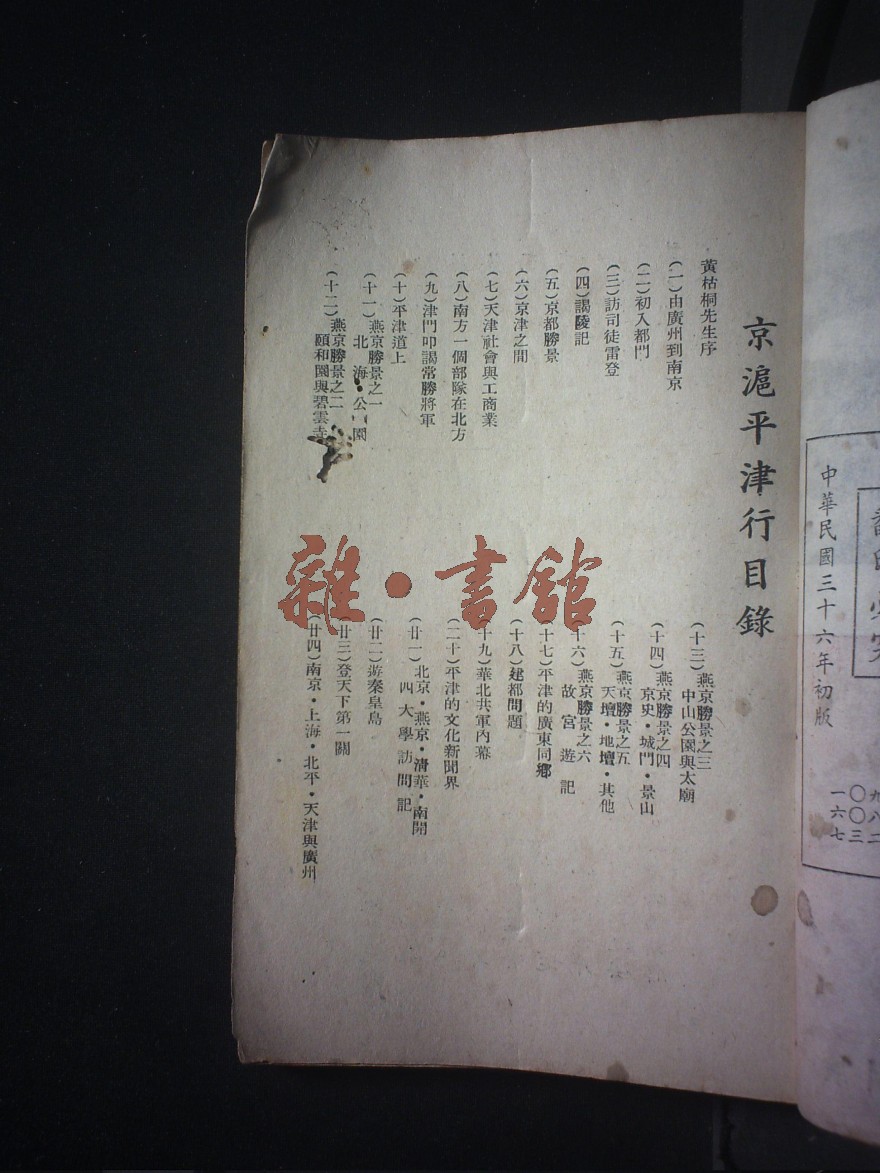 京滬平津行目錄
黃枯桐先生序
(一)由廣州到南京
(二)初入都門
(三)訪司徒雷登
(四)謁陵記
(五)京都勝景
(六)京津之間
(七)天津社會與工商業
(八)南方一個部隊在北方
(九)津門叩謁常勝將軍
(十)平津道上
(十一)燕京勝景之一
北海・公園
(十二)燕京勝景之二
頤和園與碧雲寺
(十三)燕京勝景之三
中山公園與太廟
(十四)燕京勝景之四
京史・城門・景山
(十五)燕京勝景之五
天壇・地壇・其他
十六)燕京勝景之六
故宮遊記
十七)平津的廣東同鄉
(十八)建都問題
十九)華北共軍內幕
(二十)平津的文化新聞界
(廿一)北京・燕京・清華・南開
四大學訪問記
(廿二)遊秦皇島
廿三)登天下第一關
(廿四)南京・上海・北平・天津與廣州
雜・書館
中華民國三十六年初版
九八二
〇〇三
一六七